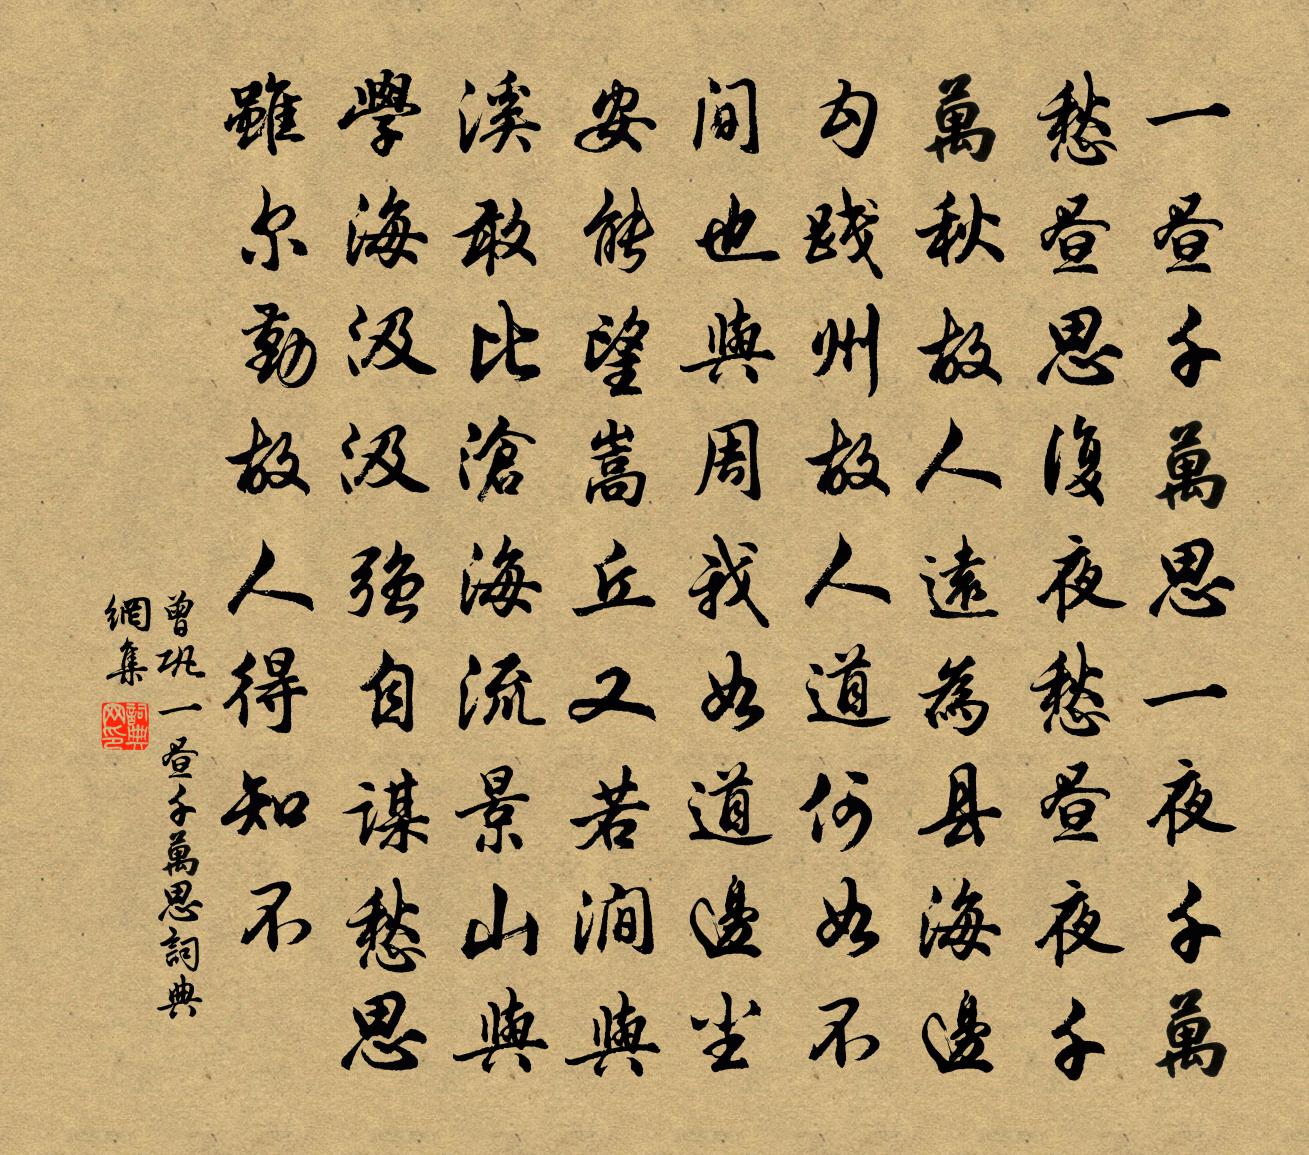 一昼千萬思一夜千萬
愁昼思復夜愁昼夜千
萬秋故人遠為县海邊
勾踐州故人道何如不
間也與周我如道邊尘
安能望嵩丘又若澗與
溪敢比滄海流景山與
學海汲汲強自謀愁思
雖尔勤故人得知不
曾巩一昼千萬思詞典
網集
詞典
网印